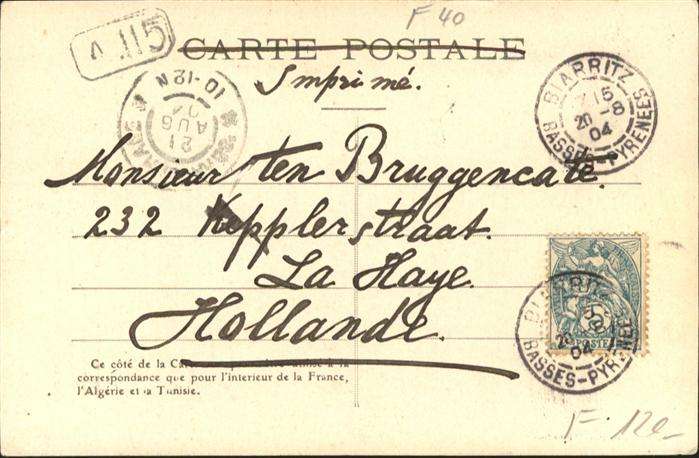 F 40
CARTE POSTALE
Imprimé.
10-12N
21
AUG
04
BIARRITZ
15
20-8
04
BASSES-PYRENEES
Monsieur ten Bruggencate.
232 Kepplerstraat.
La Haye.
Hollande.
BIARRITZ
04
BASSES-PYRENEES
POSTE
Ce côté de la
correspondance que pour l'interieur de la France,
l'Algérie et la Tunisie.
F. 120